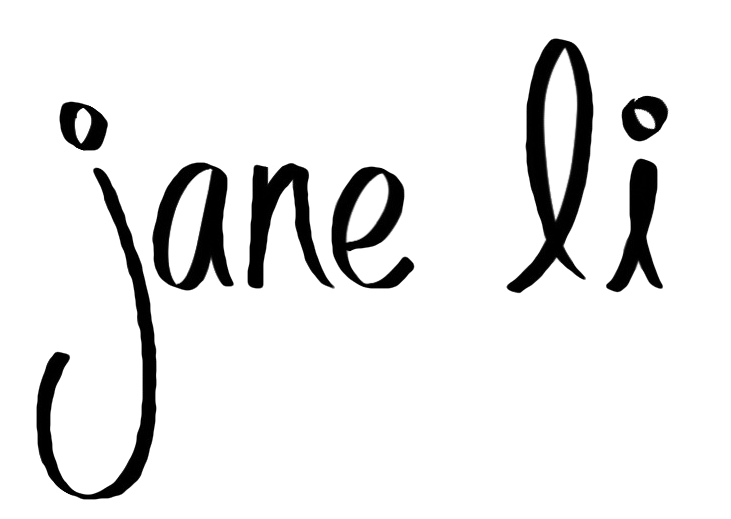 jane li